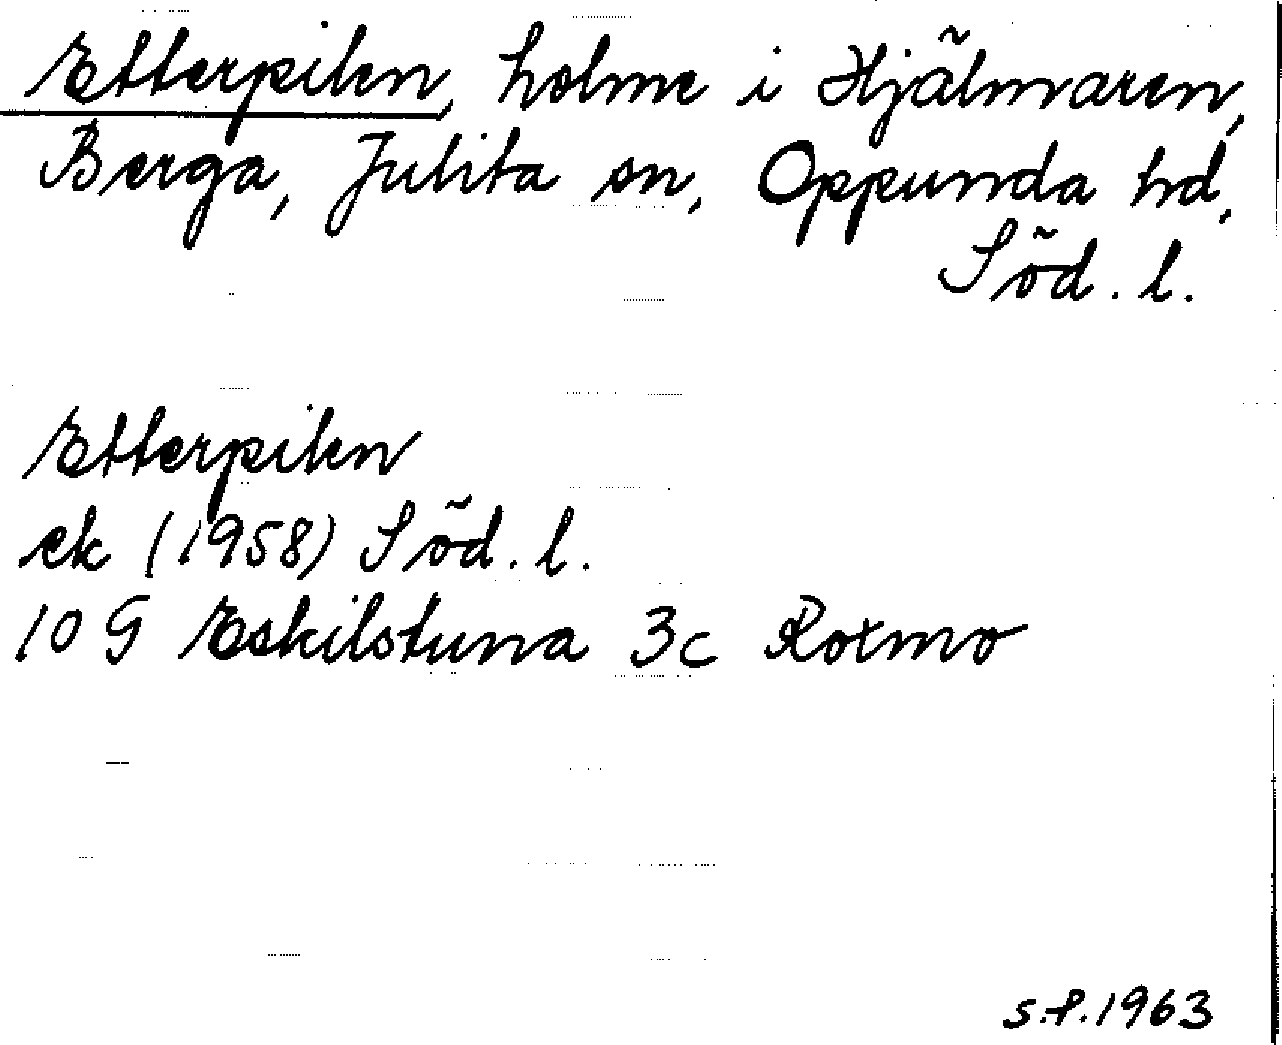 Etterpilen, holme i Hjälmaren,
Berga, Julita sn, Oppunda hd,
Söd. l.
Etterpilen
ek (1958) Söd. l.
10 G Eskilstuna 3c Rotmo
s.f. 1963